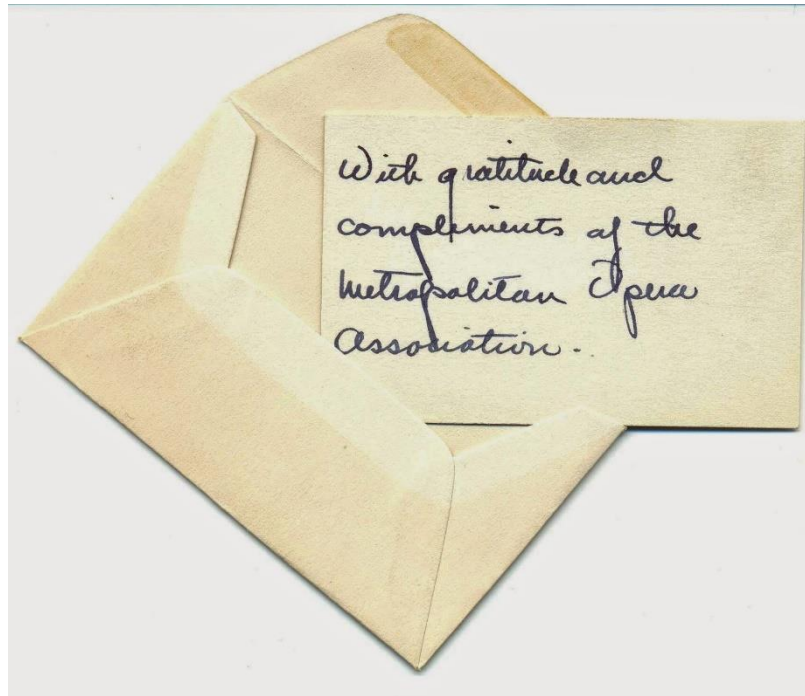 With gratitude and
compliments of the
Metropolitan Opera
Association.